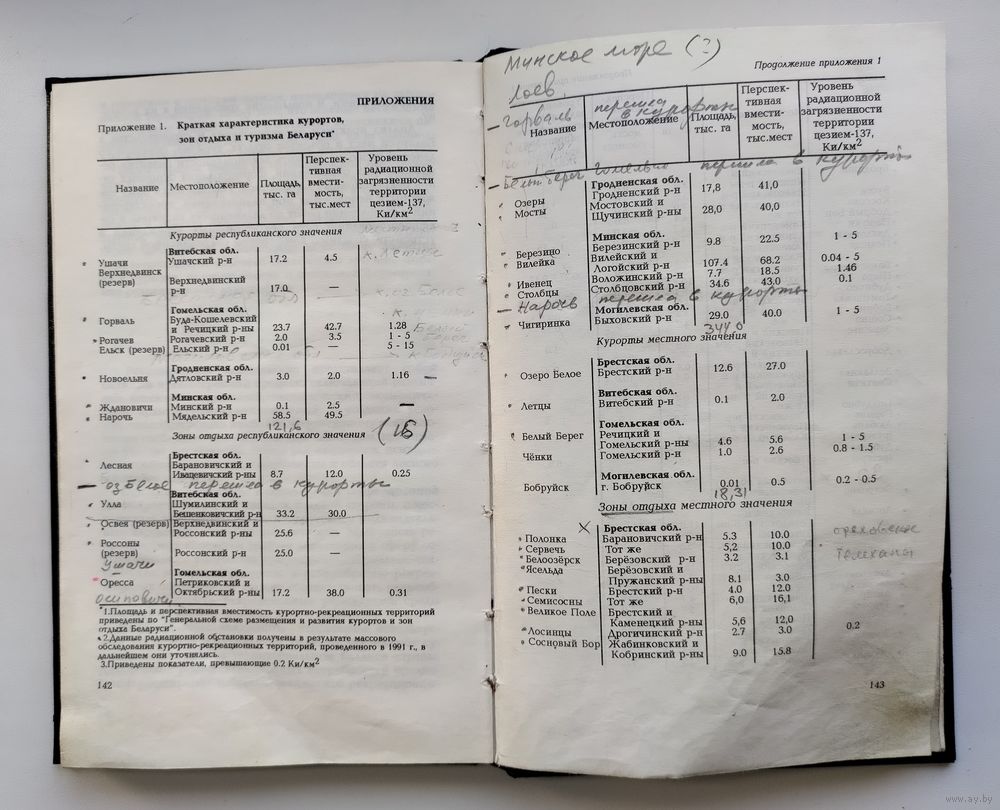 ПРИЛОЖЕНИЯ
Приложение 1. Краткая характеристика курортов,
зон отдыха и туризма Беларуси*
Название Местоположение Площадь, тыс. га Перспективная вместимость, тыс.мест Уровень радиационной загрязненности территории цезием-137, Ки/км2
Курорты республиканского значения
Витебская обл.
Ушачи Ушачский р-н 17.2 4.5
Верхнедвинск
(резерв) Верхнедвинский
р-н 17.0 —
Гомельская обл.
Горваль Буда-Кошелевский
и Речицкий р-ны 23.7 42.7 1.28
Рогачев Рогачевский р-н 2.0 3.5 1 - 5
Ельск (резерв) Ельский р-н 0.01 — 5 - 15
Гродненская обл.
Новоельня Дятловский р-н 3.0 2.0 1.16 —
Минская обл.
Ждановичи Минский р-н 0.1 2.5 —
Нарочь Мядельский р-н 58.5 49.5
121,6
Зоны отдыха республиканского значения
Брестская обл.
Лесная Барановичский и
Ивацевичский р-ны 8.7 12.0 0.25
— оз Белое перешла в курорты
Витебская обл.
Улла Шумилинский и
Бешенковичский р-н 33.2 30.0
Освея (резерв) Верхнедвинский и
Россонский р-ны 25.6 —
Россоны
(резерв) Россонский р-н 25.0 —
Ушачи
Гомельская обл.
Оресса Петриковский и
Октябрьский р-ны 17.2 38.0 0.31
Осиповичи
*1.Площадь и перспективная вместимость курортно-рекреационных территорий
приведены по "Генеральной схеме размещения и развития курортов и зон
отдыха Беларуси".
2.Данные радиационной обстановки получены в результате массового
обследования курортно-рекреационных территорий, проведенного в 1991 г., в
дальнейшем они уточнялись.
3.Приведены показатели, превышающие 0.2 Ки/км2
142
Минское море (?)
Лоев.
Продолжение приложения 1
— Горваль перешла в курорты
Название Местоположение Площадь, тыс. га Перспективная вместимость, тыс.мест Уровень радиационной загрязненности территории цезием-137, Ки/км2
— Белый берег Гомелью перешла в курорты
Гродненская обл.
Озеры Гродненский р-н 17,8 41,0
Мосты Мостовский и
Щучинский р-ны 28,0 40,0
Минская обл.
Березино Березинский р-н 9.8 22.5 1 - 5
Вилейка Вилейский и
Логойский р-ны 107.4 68.2 0.04 - 5
Ивенец Воложинский р-н 7.7 18.5 1.46
Столбцы Столбцовский р-н 34.6 43.0 0.1
— Нарочь перешла в курорты
Могилевская обл.
Чигиринка Быховский р-н 29.0 40.0 1 - 5
344,0
Курорты местного значения
Брестская обл.
Озеро Белое Брестский р-н 12.6 27.0
Витебская обл.
Летцы Витебский р-н 0.1 2.0
Гомельская обл.
Белый Берег Речицкий и
Гомельский р-ны 4.6 5.6 1 - 5
Чёнки Гомельский р-н 1.0 2.6 0.8 - 1.5
Могилевская обл.
Бобруйск г. Бобруйск 0.01 0.5 0.2 - 0.5
18,31
Зоны отдыха местного значения
Брестская обл.
Полонка Барановичский р-н 5.3 10.0
Сервечь Тот же 5,2 10.0
Белоозёрск Берёзовский р-н 3.2 3.1
Телеханы
Ясельда Берёзовский и
Пружанский р-ны 8.1 3.0
Пески Брестский р-н 4.0 12.0
Семисосны Тот же 6,0 16,1
Великое Поле Брестский и
Каменецкий р-ны 5,6 12,0 0.2
Лосинцы Дрогичинский р-н 2.7 3.0
Сосновый Бор Жабинковский и
Кобринский р-ны 9.0 15.8
143
www.ay.by